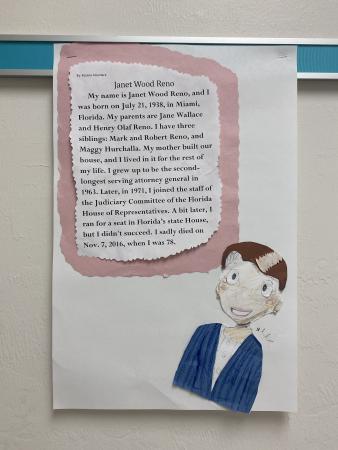 Janet Wood Reno
My name is Janet Wood Reno, and I
was born on July 21, 1938, in Miami,
Florida. My parents are Jane Wallace
and Henry Olaf Reno. I have three
siblings: Mark and Robert Reno, and
Maggy Hurchalla. My mother built our
house, and I lived in it for the rest of
my life. I grew up to be the second-
longest serving attorney general in
1963. Later, in 1971, I joined the staff of
the Judiciary Committee of the Florida
House of Representatives. A bit later, I
ran for a seat in Florida's state House,
but I didn't succeed. I sadly died on
Nov. 7, 2016, when I was 78.